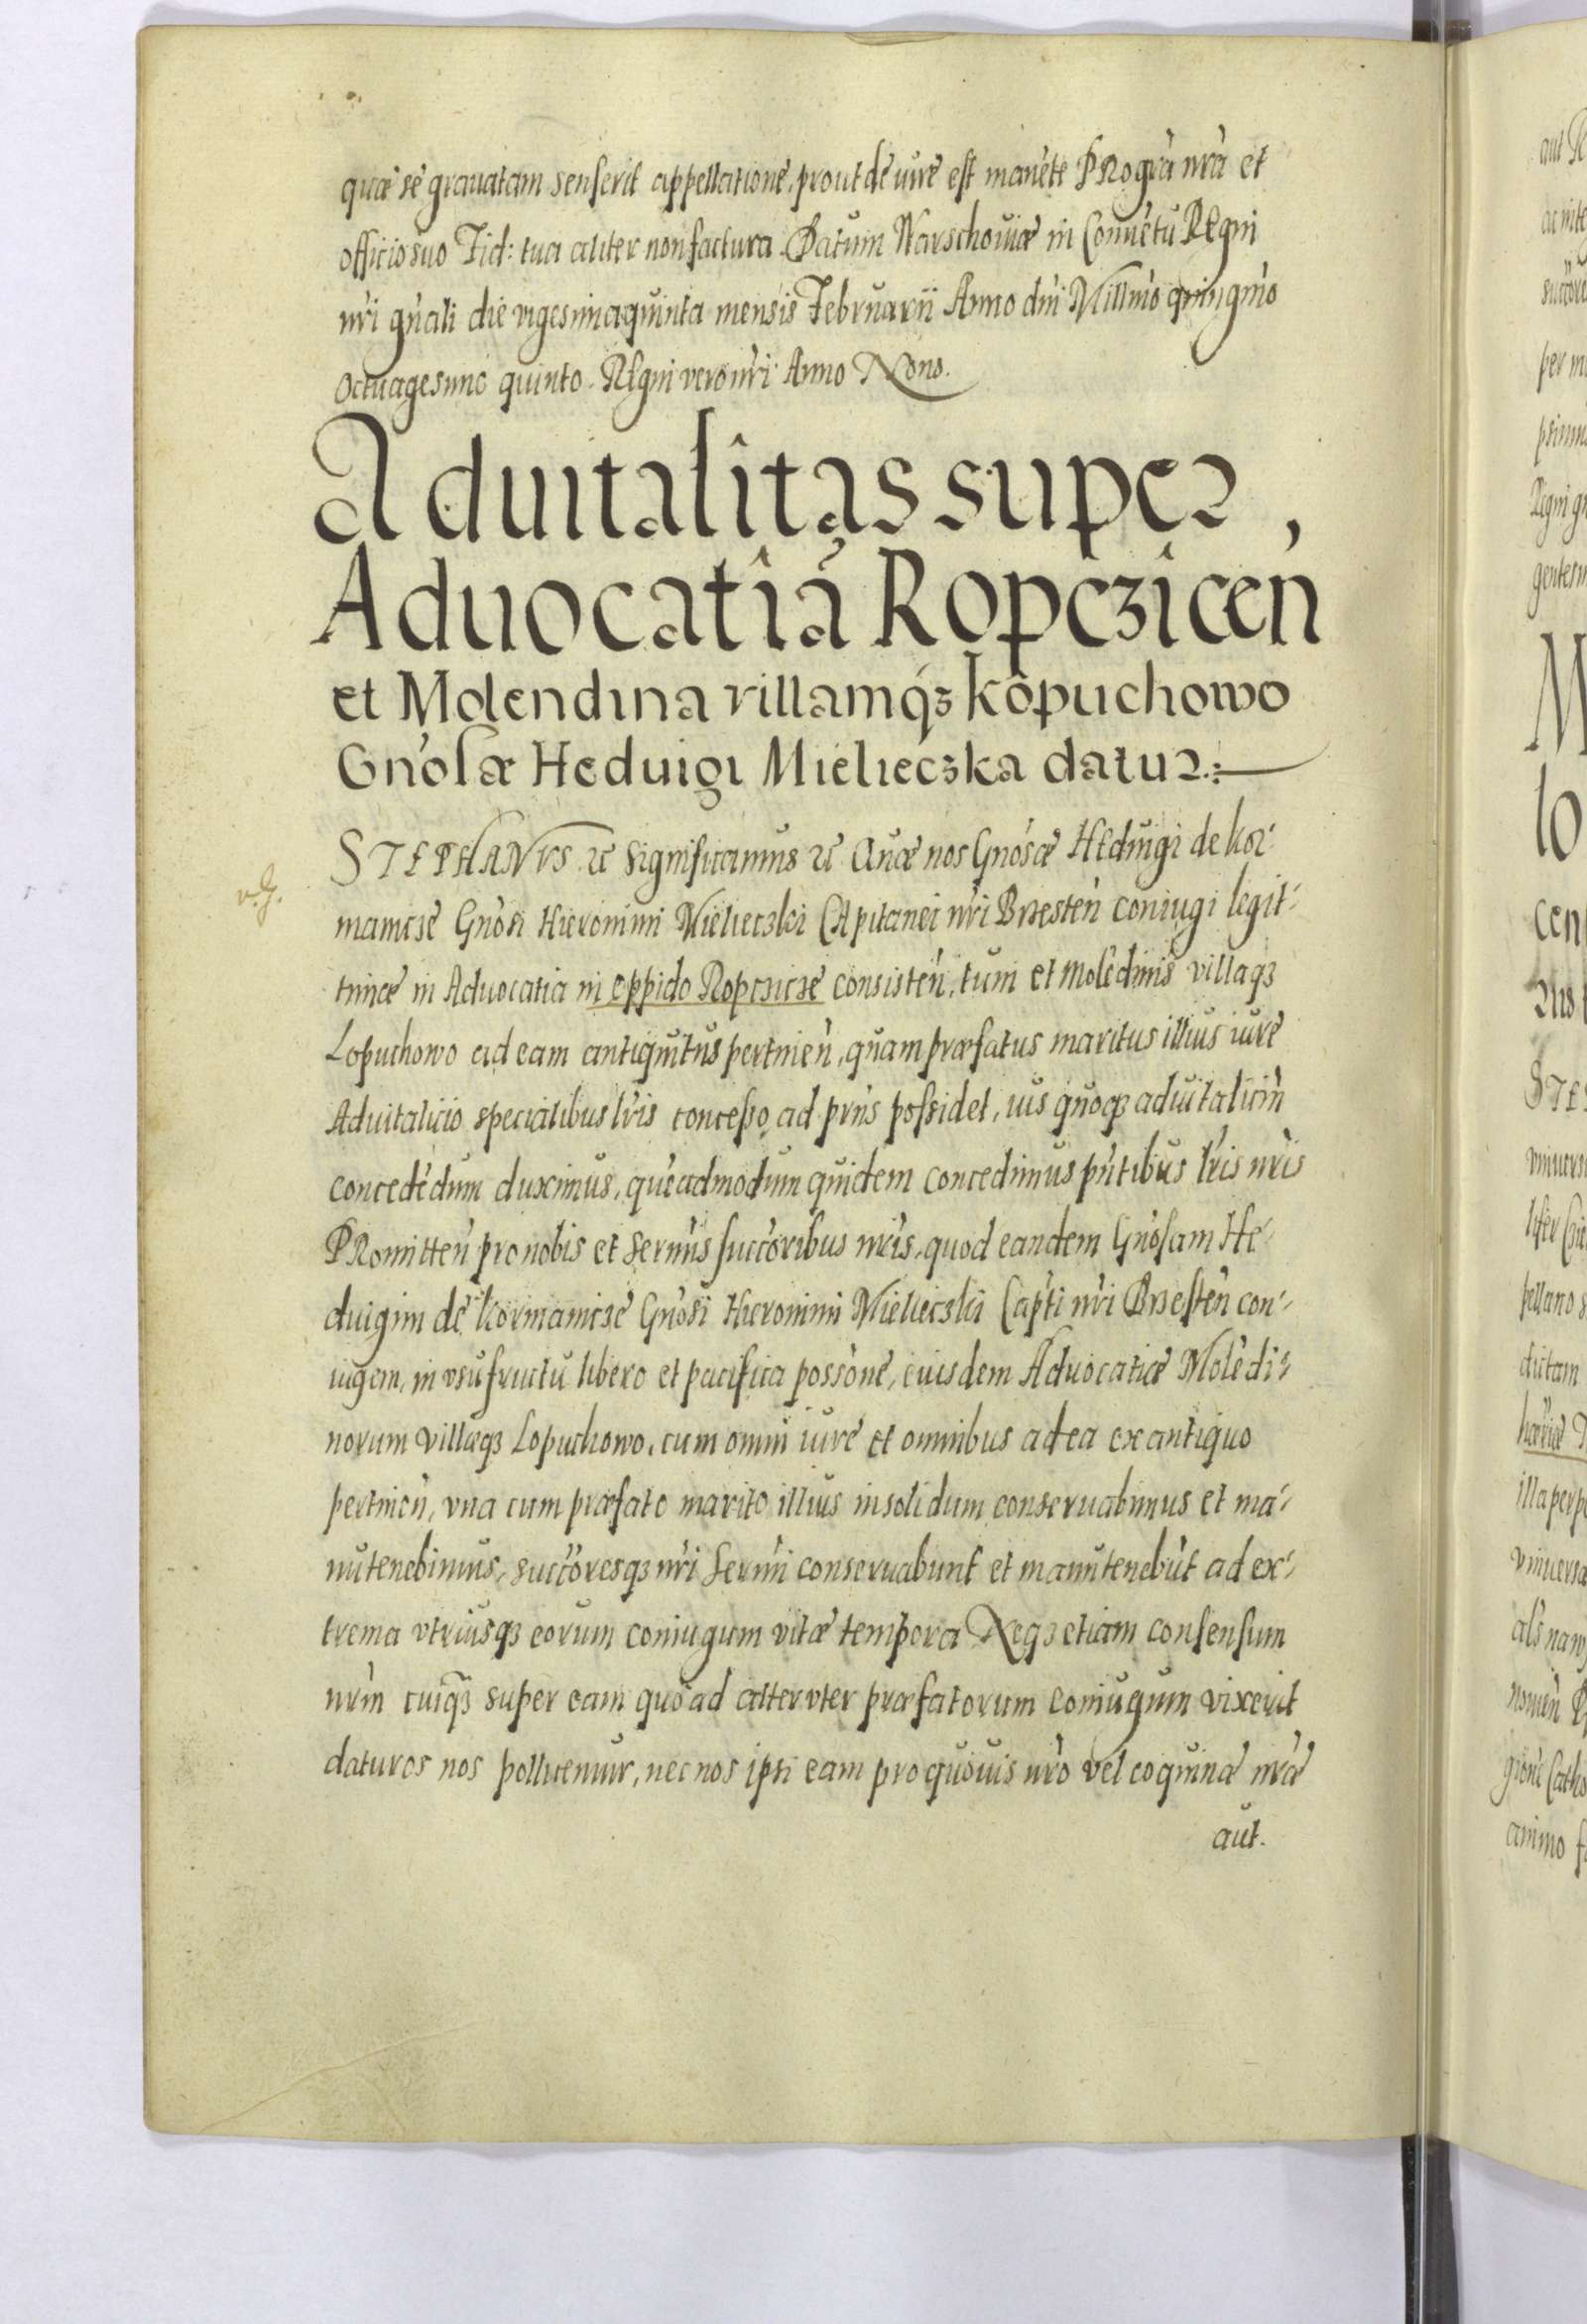 quæ se grauatam senserit appellatione, prout de iure est manẽte PRo gr̃a nr̃a et
officio suo Fid: tua aliter non factura. Datum Warschouiæ in Conuẽtu REgni
nr̃i gñali die vigesima quinta mensis Februarii Anno dñi Millm̃o quingm̃o
octuagesimo quinto. REgni vero nr̃i Anno Nono.
Aduitalitas super
Aduocatiã Ropczicen̄
et Molendina villamq́ʒ kopuchowo
Gn̄osæ Heduigi Mielieczka datur.
STEPHANVS &c significamus &c Quæ nos Gn̄osæ HEduigi de kor-
manicze Gn̄osi Hieronimi Mielieczki CApitanei nr̃i Brzesten̄ coniugi legit-
timæ in Aduocatia in oppido Ropczicze consisten̄, tum et molẽdinis villaqʒ
Lopuchowo ad eam antiquitus pertinen̄, quam præfatus maritus illius iure
Aduitalicio specialibus lr̃is concesso, ad prñs possidet, ius quoqʒ aduitalicm̃
concedẽdum duximus, quẽadmodum quidem concedimus pñtibus lr̃is nr̃is
PRomitten̄ pro nobis et serm̃is succõribus nr̃is, quod eandem Gn̄osam He-
duigim de kormanicze Gn̄osi Hieronimi Mielieczki Capt̃i nr̃i Brzesten̄ con-
iugem, in vsufructu libero et pacifica possõne, eiusdem Aduocatiæ Molẽdi-
norum villæqʒ Lopuchowo, cum omni iure et omnibus ad ea ex antiquo
pertinen̄, vna cum præfato marito illius insolidum conseruabimus et ma-
nutenebimus, succõresqʒ nr̃i Serm̃i conseruabunt et manutenebũt ad ex-
trema vtriusqʒ eorum coniugum vitæ tempora Neqʒ etiam consensum
nrm̃ cuiqʒ super eam quoad alteruter præfatorum coniugum vixerit
daturos nos pollicemur, nec nos ipsi eam pro quouis nr̃o vel coquinæ nr̃æ
aut.